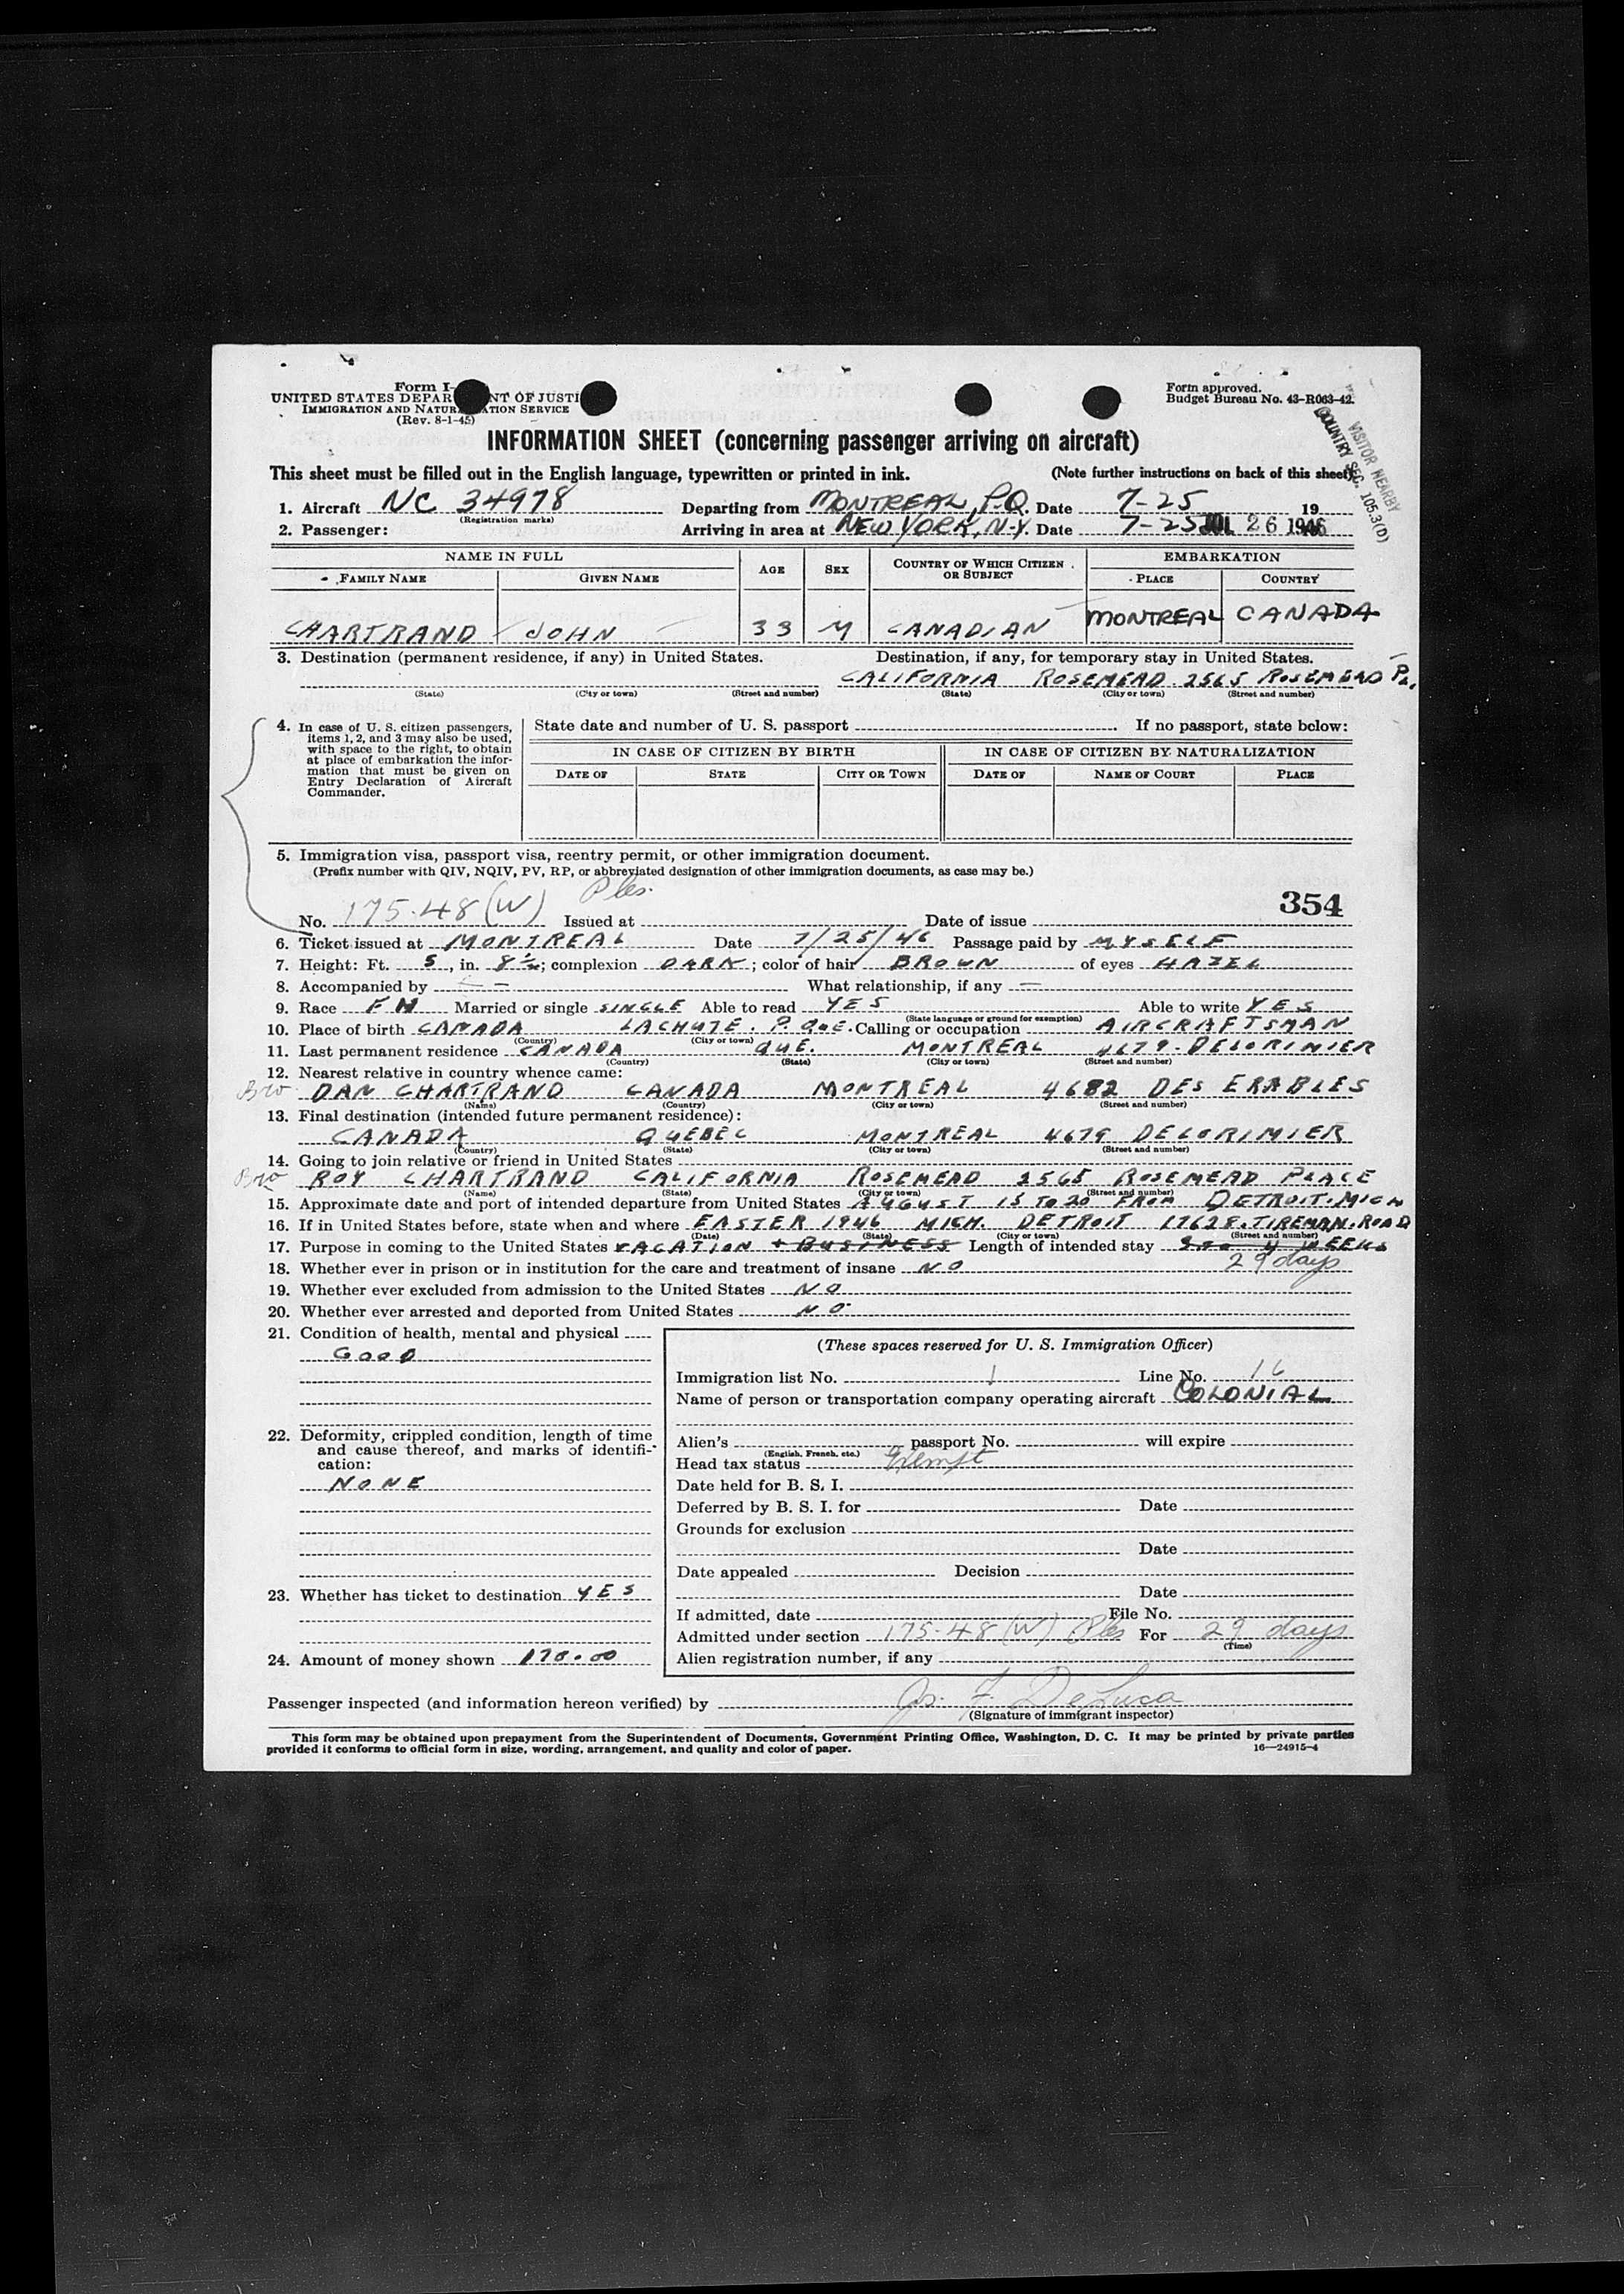 Form I-
Form approved.
UNITED STATES DEPAR NT OF JUSTI
Budget Bureau No. 43-R063-42.
IMMIGRATION AND NATUR ATION SERVICE
(Rev. 8-1-45)
VISITOR NEARBY
COUNTRY SEC. 105.3(D)
INFORMATION SHEET (concerning passenger arriving on aircraft)
This sheet must be filled out in the English language, typewritten or printed in ink. (Note further instructions on back of this sheet)
1. Aircraft NC 34978 Departing from MONTREAL, P.Q. Date 7-25 19
(Registration marks)
2. Passenger: Arriving in area at NEW YORK, N.Y. Date 7-25 JUL 26 1946
NAME IN FULL AGE SEX COUNTRY OF WHICH CITIZEN OR SUBJECT EMBARKATION
FAMILY NAME GIVEN NAME PLACE COUNTRY
CHARTRAND JOHN 33 M CANADIAN MONTREAL CANADA
3. Destination (permanent residence, if any) in United States. Destination, if any, for temporary stay in United States.
CALIFORNIA ROSEMEAD 2565 ROSEMEAD PL.
(State) (City or town) (Street and number) (State) (City or town) (Street and number)
4. In case of U. S. citizen passengers, items 1, 2, and 3 may also be used, with space to the right, to obtain at place of embarkation the information that must be given on Entry Declaration of Aircraft Commander.
State date and number of U. S. passport If no passport, state below:
IN CASE OF CITIZEN BY BIRTH IN CASE OF CITIZEN BY NATURALIZATION
DATE OF STATE CITY OR TOWN DATE OF NAME OF COURT PLACE
5. Immigration visa, passport visa, reentry permit, or other immigration document.
(Prefix number with QIV, NQIV, PV, RP, or abbreviated designation of other immigration documents, as case may be.)
354
No. 175.48 (W) Ples. Issued at Date of issue
6. Ticket issued at MONTREAL Date 7/25/46 Passage paid by MYSELF
7. Height: Ft. 5, in. 8½; complexion DARK; color of hair BROWN of eyes HAZEL
8. Accompanied by — — What relationship, if any —
9. Race FH Married or single SINGLE Able to read YES Able to write YES
(State language or ground for exemption)
10. Place of birth CANADA LACHUTE. P. QUE. Calling or occupation AIRCRAFTSMAN
(Country) (City or town)
11. Last permanent residence CANADA QUE. MONTREAL 4679. DELORIMIER
(Country) (State) (City or town) (Street and number)
12. Nearest relative in country whence came:
Bro DAN CHARTRAND CANADA MONTREAL 4682 DES ERABLES
(Name) (Country) (City or town) (Street and number)
13. Final destination (intended future permanent residence):
CANADA QUEBEC MONTREAL 4679 DELORIMIER
(Country) (State) (City or town) (Street and number)
14. Going to join relative or friend in United States
Bro ROY CHARTRAND CALIFORNIA ROSEMEAD 2565 ROSEMEAD PLACE
(Name) (State) (City or town) (Street and number)
15. Approximate date and port of intended departure from United States AUGUST 15 TO 20 FROM DETROIT. MICH
16. If in United States before, state when and where EASTER 1946 MICH. DETROIT 17628. TIREMAN. ROAD
(Date) (State) (City or town) (Street and number)
17. Purpose in coming to the United States VACATION + BUSINESS Length of intended stay 4 WEEKS
18. Whether ever in prison or in institution for the care and treatment of insane NO 29 days
19. Whether ever excluded from admission to the United States NO
20. Whether ever arrested and deported from United States NO
21. Condition of health, mental and physical
GOOD
22. Deformity, crippled condition, length of time and cause thereof, and marks of identification:
NONE
23. Whether has ticket to destination YES
24. Amount of money shown 170.00
(These spaces reserved for U. S. Immigration Officer)
Immigration list No. 1 Line No. 16
Name of person or transportation company operating aircraft COLONIAL
Alien's passport No. will expire
(English, French, etc.)
Head tax status Exempt
Date held for B. S. I.
Deferred by B. S. I. for Date
Grounds for exclusion
Date
Date appealed Decision
Date
If admitted, date File No.
Admitted under section 175.48 (W) Ples For 29 days
(Time)
Alien registration number, if any
Passenger inspected (and information hereon verified) by Js. F. DeLuca
(Signature of immigrant inspector)
This form may be obtained upon prepayment from the Superintendent of Documents, Government Printing Office, Washington, D. C. It may be printed by private parties
provided it conforms to official form in size, wording, arrangement, and quality and color of paper. 16—24915-4